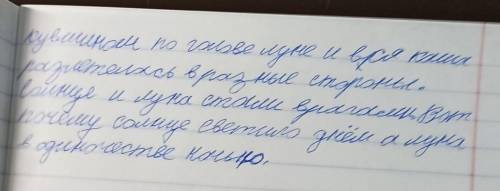 кувшином по голове луне и вся каша
разлетелась в разные стороны.
Солнце и луна стали врагами. Вот
почему солнце светило днём а луна
в одиночестве ночью.